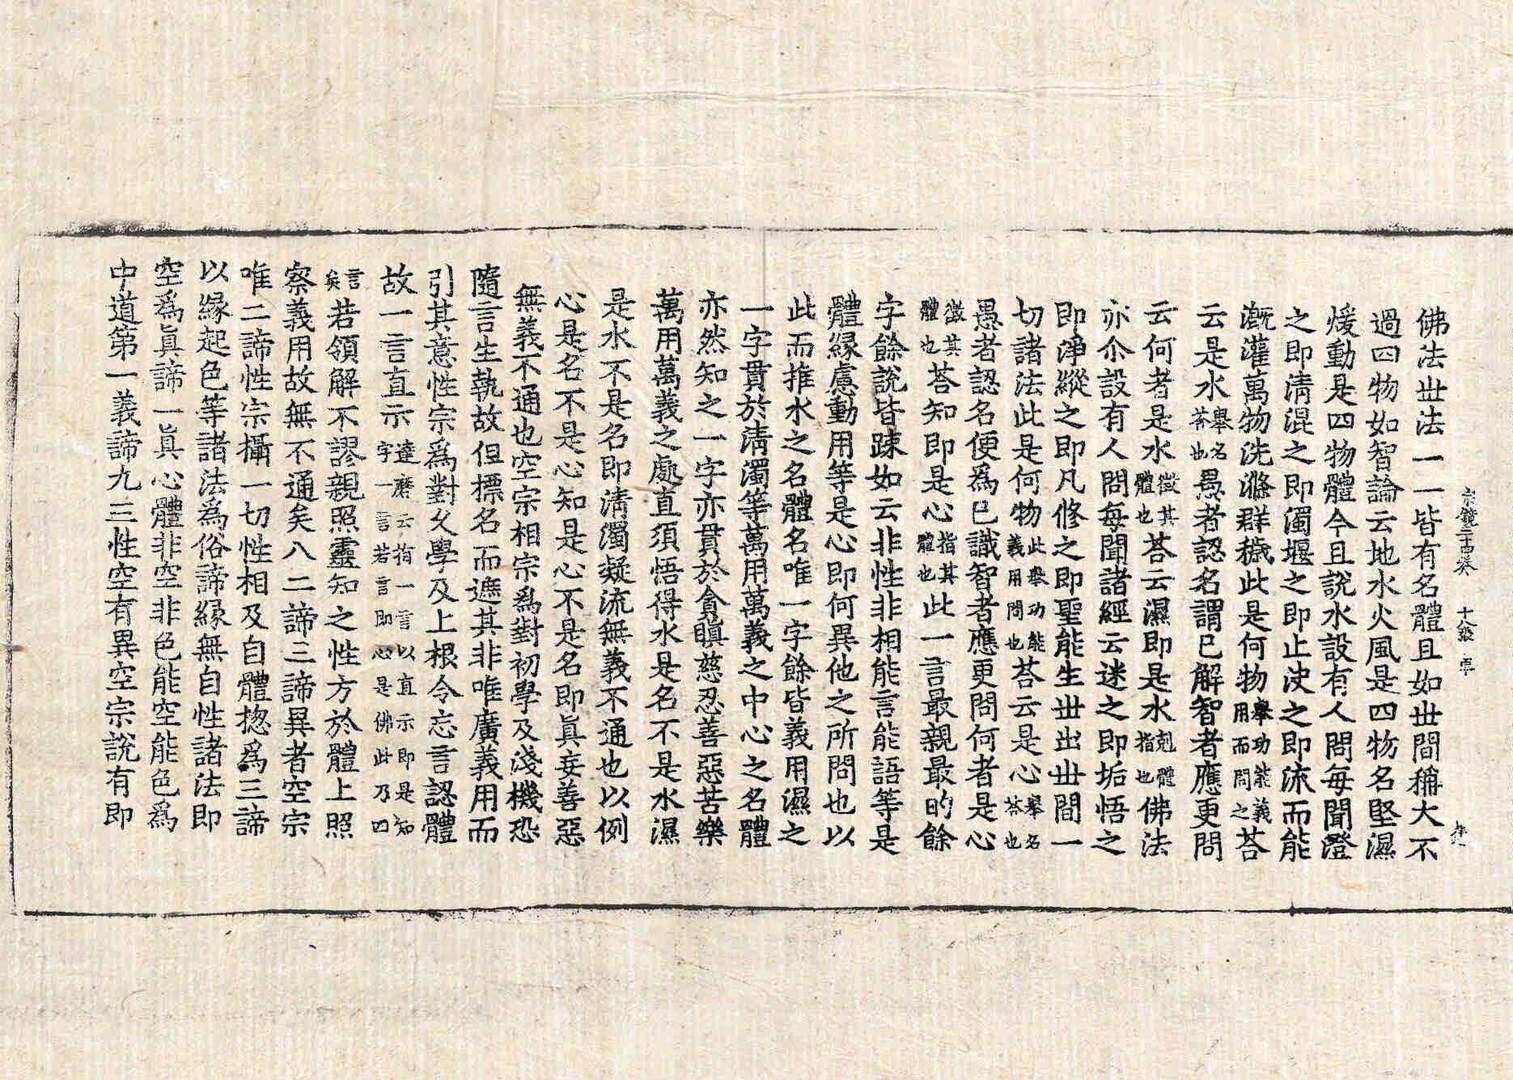 宗鏡三十四卷 十八張 宁
佛法世法一一皆有名體且如世間稱大不
過四物如智論云地水火風是四物名堅濕
煖動是四物體今且說水設有人問每聞澄
之即淸混之即濁堰之即止决之即流而能
漑灌萬物洗滌群穢此是何物擧功能義用而問之荅
云是水擧名荅也愚者認名謂已解智者應更問
云何者是水徵其體也荅云濕即是水剋體指也佛法
亦尒設有人問每聞諸經云迷之即垢悟之
即淨縱之即凡修之即聖能生世出世間一
切諸法此是何物此擧功能義用問也荅云是心擧名荅也
愚者認名便爲已識智者應更問何者是心
徵其體也荅知即是心指其體也此一言最親最的餘
字餘說皆踈如云非性非相能言能語等是
體緣慮動用等是心即何異他之所問也以
此而推水之名體名唯一字餘皆義用濕之
一字貫於淸濁等萬用萬義之中心之名體
亦然知之一字亦貫於貪瞋慈忍善惡苦樂
萬用萬義之處直須悟得水是名不是水濕
是水不是名即淸濁凝流無義不通也以例
心是名不是心知是心不是名即眞妄善惡
無義不通也空宗相宗爲對初學及淺機恐
隨言生執故但標名而遮其非唯廣義用而
引其意性宗爲對久學及上根令忘言認體
故一言直示達磨云指一言以直示即是知字一言若言即心是佛此乃四
言矣若領解不謬親照靈知之性方於體上照
察義用故無不通矣八二諦三諦異者空宗
唯二諦性宗攝一切性相及自體揔爲三諦
以緣起色等諸法爲俗諦緣無自性諸法即
空爲眞諦一眞心體非空非色能空能色爲
中道第一義諦九三性空有異空宗說有即